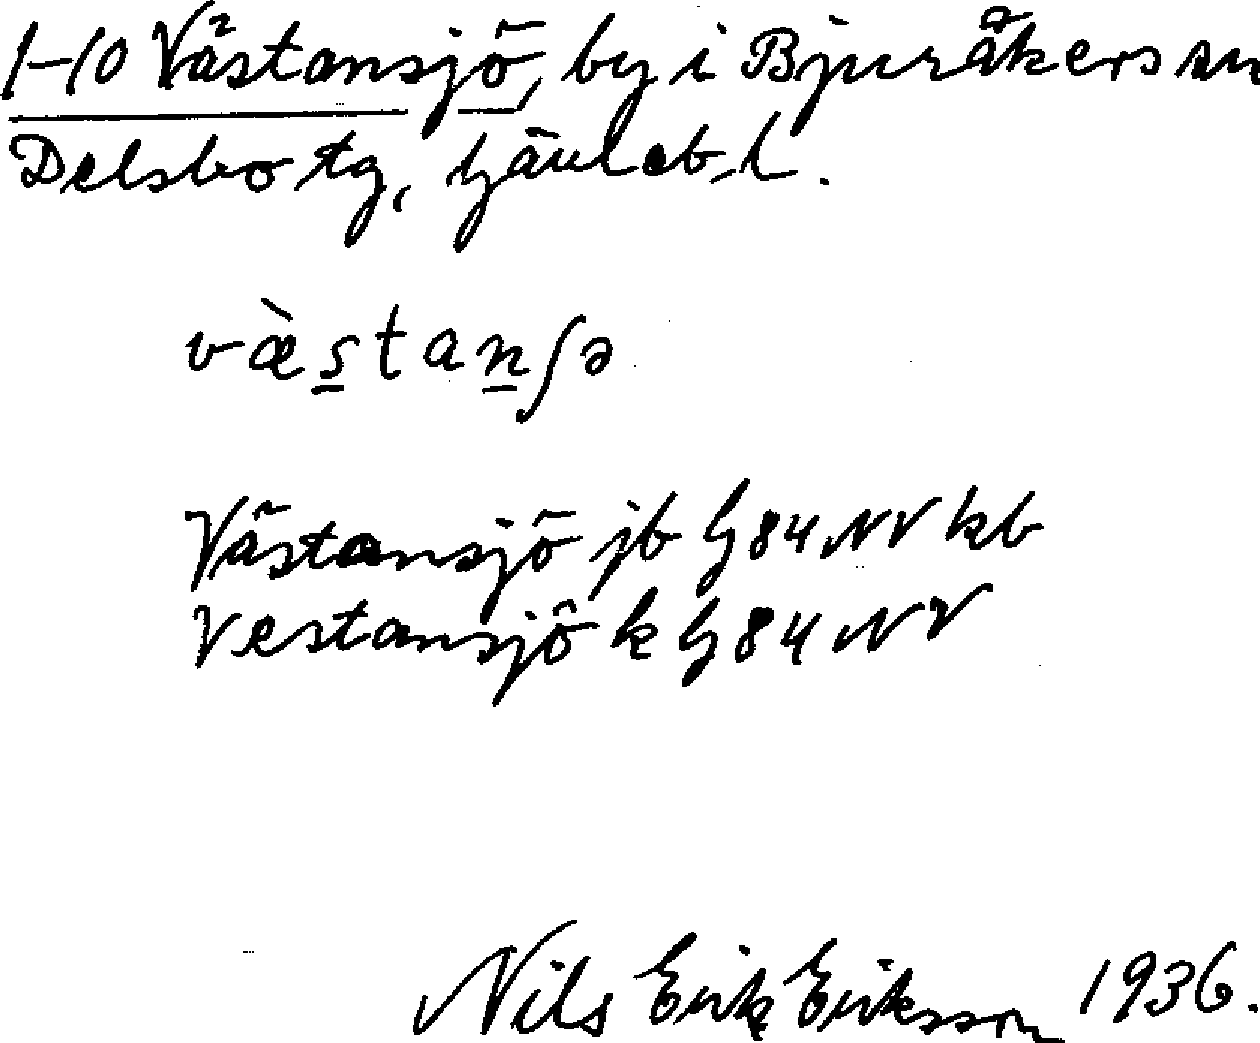 1-10 Västansjö, by i Bjuråkers sn
Delsbo tg, Gävleb. l.
væ̀s̲tan̲ʃə
Västansjö jb G84NV kb
Vestansjö k G84NV
Nils Erik Eriksson 1936.